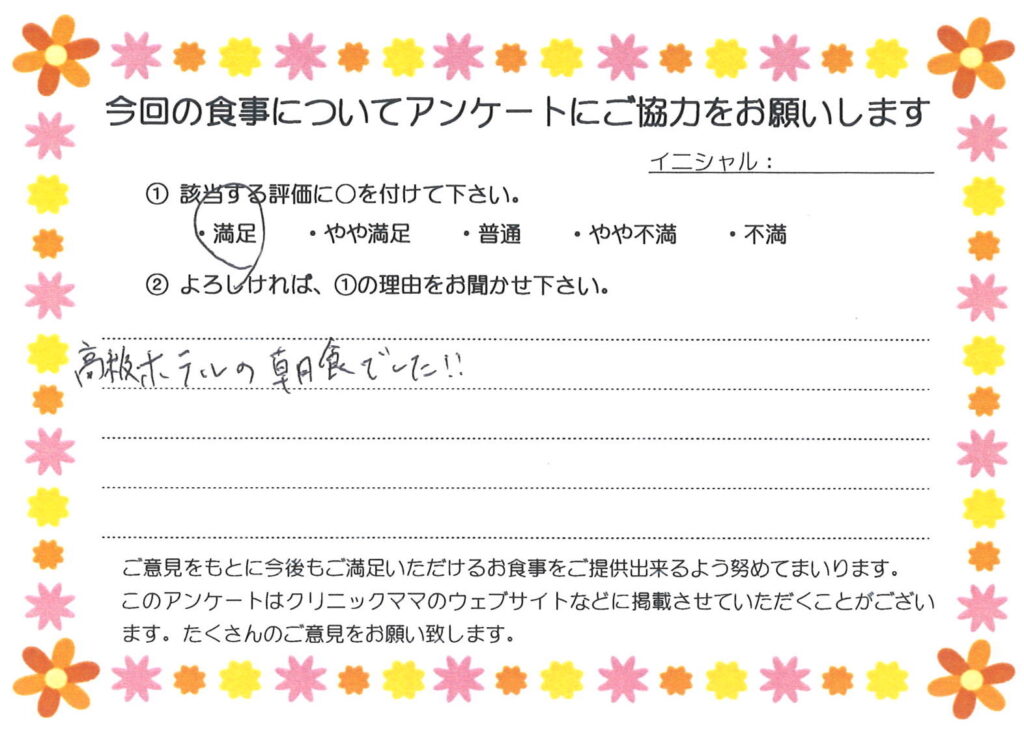 今回の食事についてアンケートにご協力をお願いします
イニシャル：
① 該当する評価に○を付けて下さい。
・満足　・やや満足　・普通　・やや不満　・不満
② よろしければ、①の理由をお聞かせ下さい。
高級ホテルの朝食でした!!
ご意見をもとに今後もご満足いただけるお食事をご提供出来るよう努めてまいります。
このアンケートはクリニックママのウェブサイトなどに掲載させていただくことがござい
ます。たくさんのご意見をお願い致します。